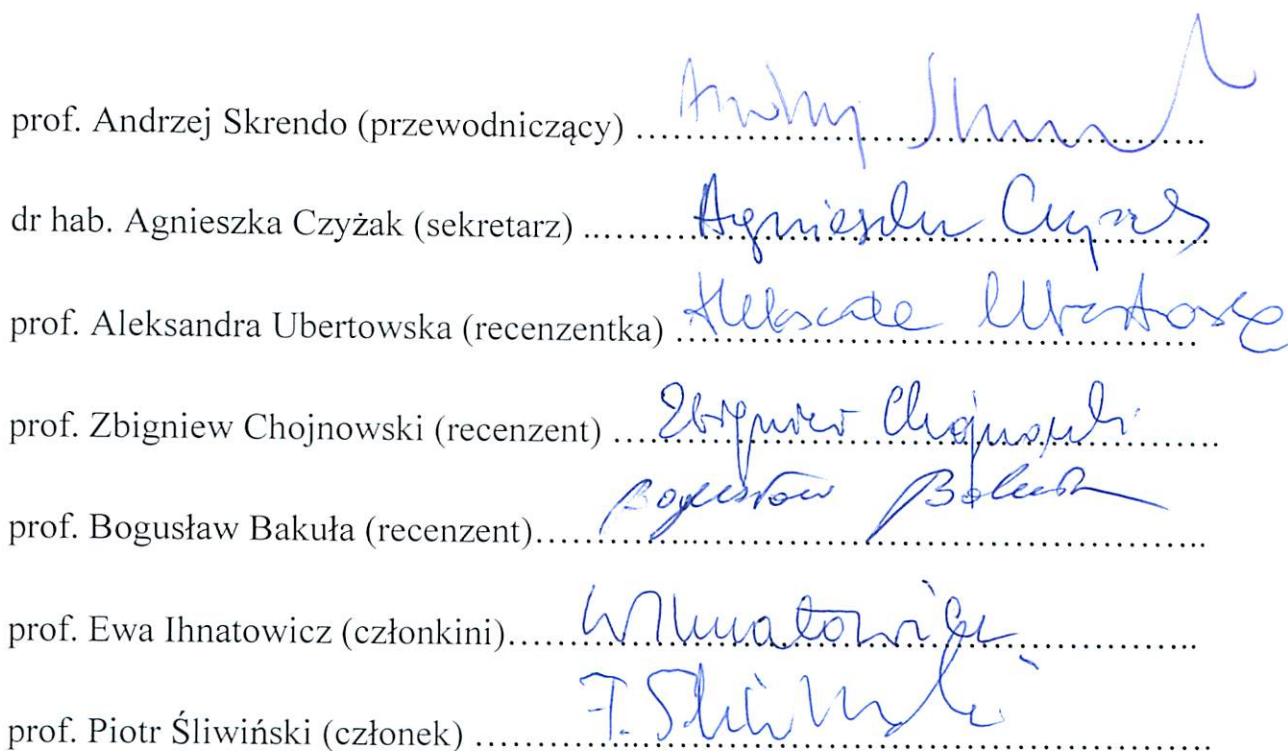 prof. Andrzej Skrendo (przewodniczący) ............................................................
dr hab. Agnieszka Czyżak (sekretarz) ............................................................
Agnieszka Czyżak
prof. Aleksandra Ubertowska (recenzentka) ......................................................
prof. Zbigniew Chojnowski (recenzent) ............................................................
Zbigniew Chojnowski
prof. Bogusław Bakuła (recenzent)............................................................
Bogusław Bakuła
prof. Ewa Ihnatowicz (członkini)............................................................
prof. Piotr Śliwiński (członek) ............................................................